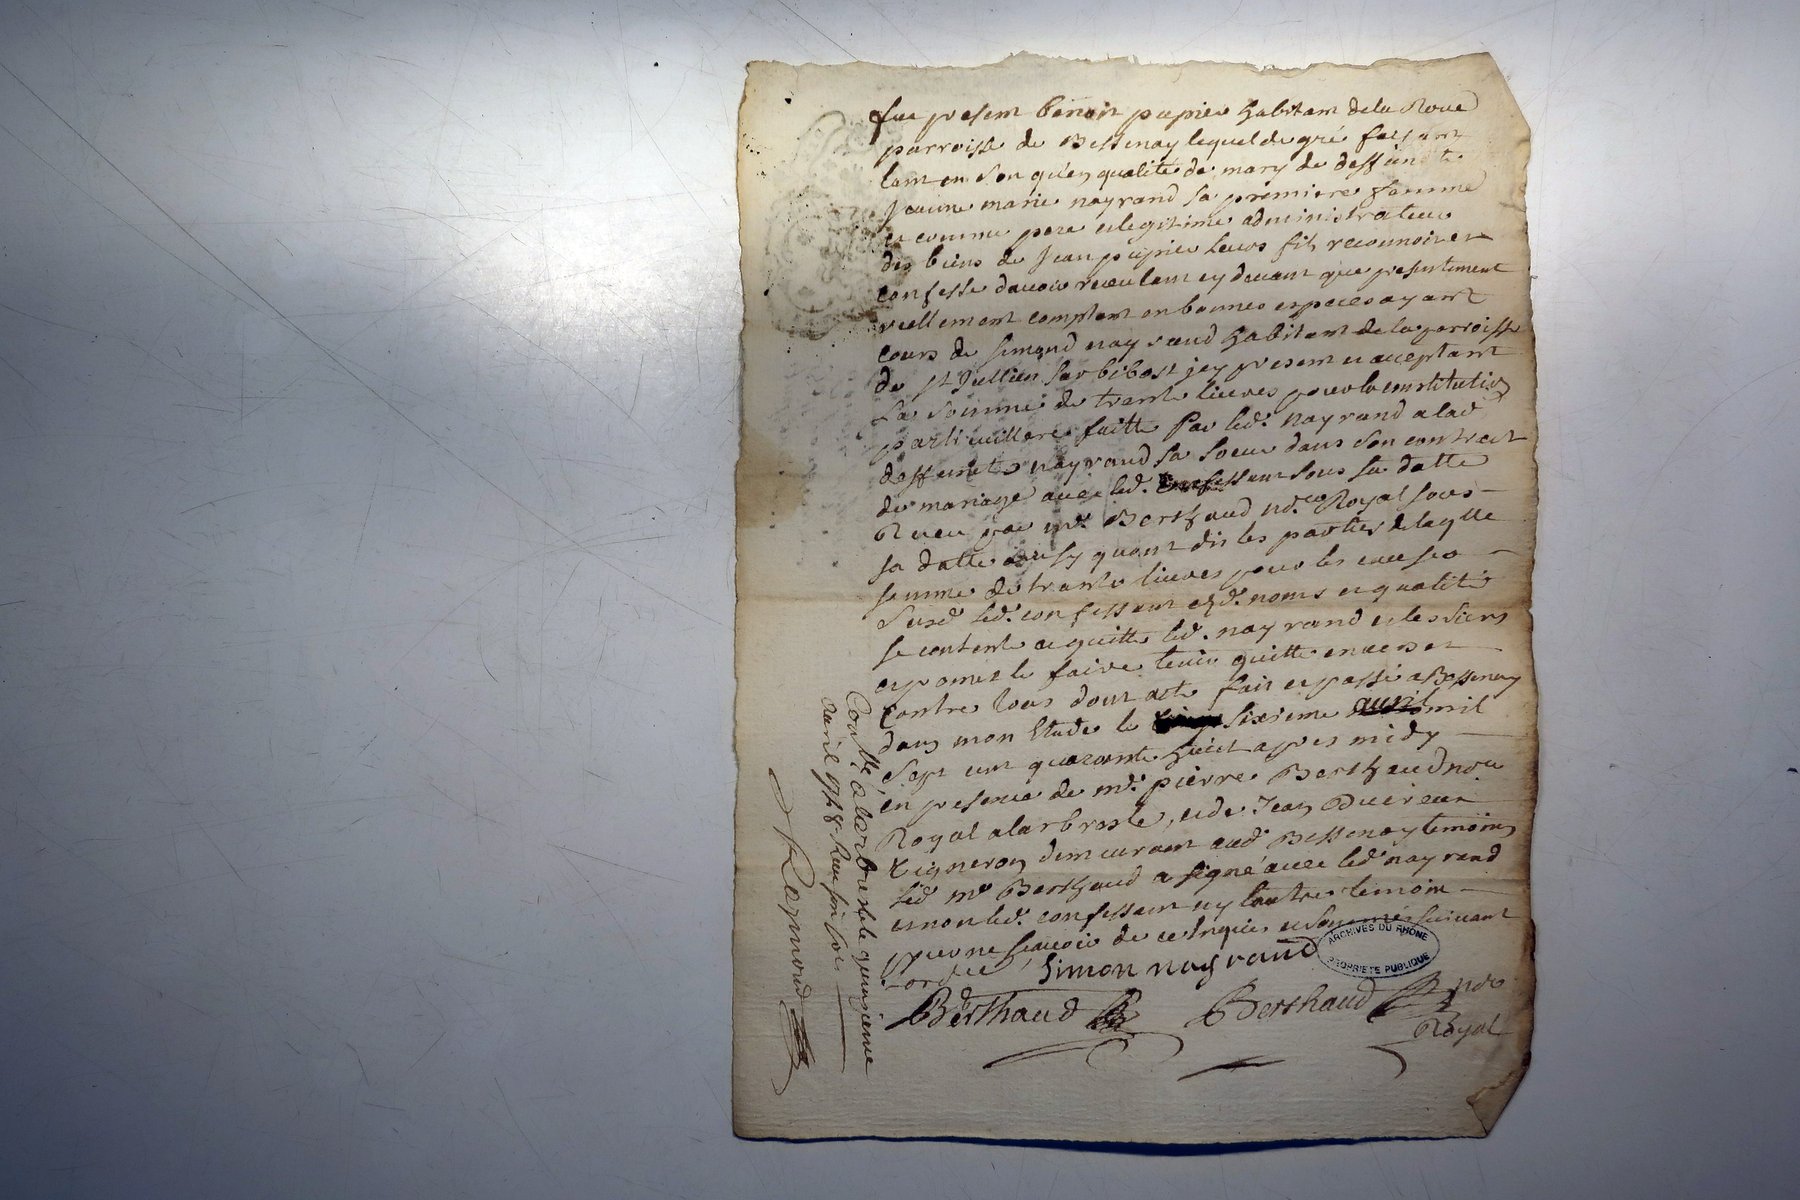 fut present benoit pupier habitant de la Roue
parroisse de Bessenay lequel de gré faisant
tant en son qu'en qualité de mary de deffuncte
Jeanne marie nayrand sa premiere femme
et comme pere et legitime administrateur
des biens de Jean pupier leurs fils reconnoit et
confesse d'avoir receu tant cy devant que presentement
reellement comptant en bonnes especes ayant
cours de simond nayrand habitant de la parroisse
de st Jullien sur bibost icy present et acceptant
La somme de trente livres pour la constitution
particulliere faitte par led. nayrand a lad
deffuncte nayrand sa soeur dans son contract
de mariage avec led. confessant sous sa datte
Receu par me. Berthaud nore Royal sous
sa datte ainsy quont dit les parties de laqlle
somme de trante livres pour les causes
susd led. confessant esd. noms et qualité
se contente et quitte led. nayrand et les siens
et promet le faire tenir quitte envers et
contre tous dont acte fait et passé a Bessenay
dans mon Etude le sixieme avril mil
sept cent quarante huict apres midy
en presence de me. pierre Berthaud nore
Royal a larbresle, et de Jean
vigneron demeurant aud. Bessenay temoins
led me Berthaud a signé avec led nayrand
et non led. confessant ny lautre temoin
pour ne scavoir de ce Enquis et sommés suivant
Lordce
Simon nayrand
Berthaud
Berthaud nore
Royal
ARCHIVES DU RHÔNE
PROPRIETE PUBLIQUE
Conllé a larbresle le quinzieme
avril 1748. Reçu six sols
Raymond